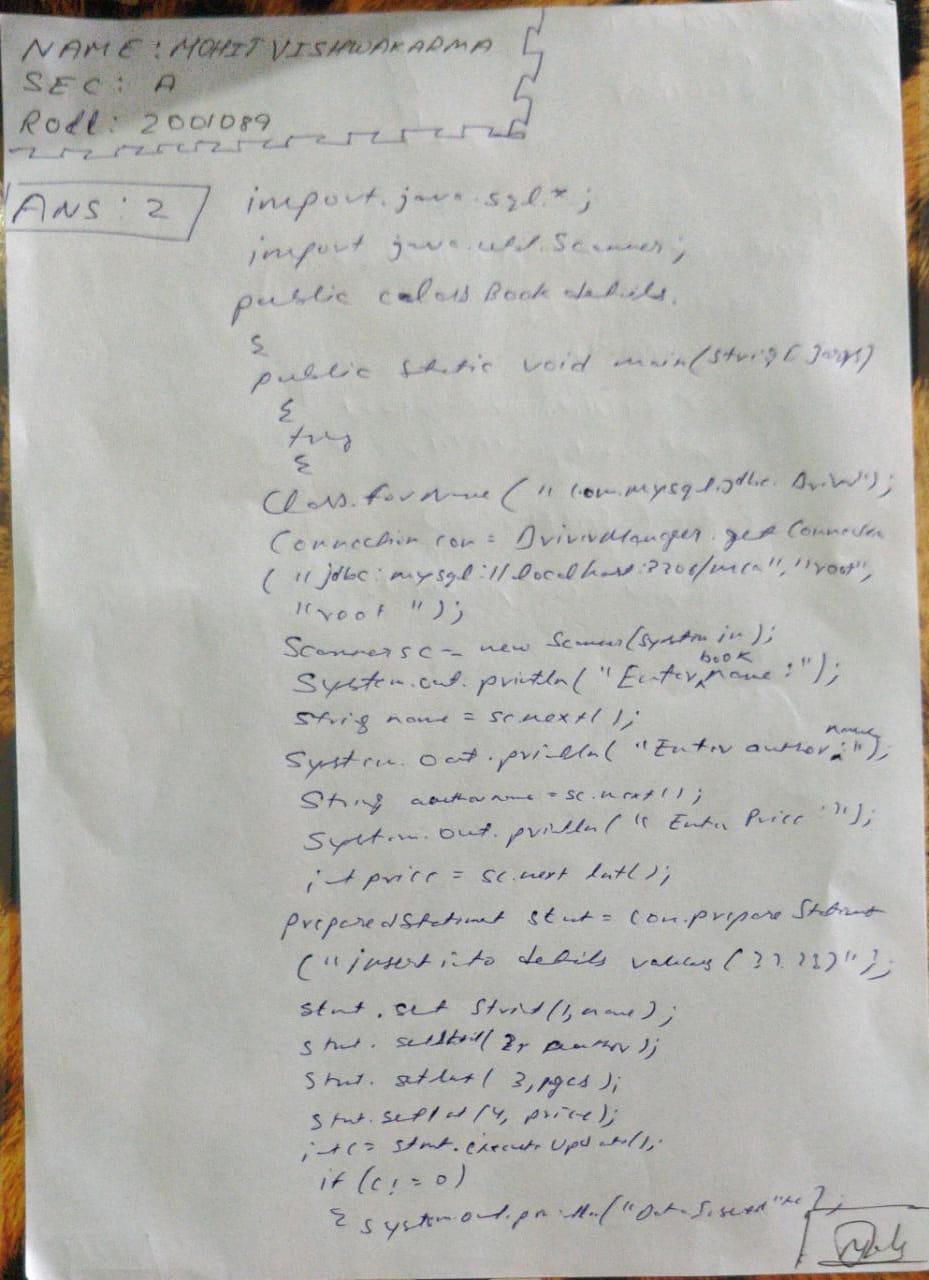 NAME : MOHIT VISHWAKARMA
SEC : A
Roll : 2001089
ANS : 2
import.java.sql.*;
import java.util.Scanner;
public calass Book details.
{
public static void main(String[]args)
{
try
{
Class.forName("com.mysql.jdbc.Driver");
Connection con = DriverManager.get Connection
("jdbc:mysql://localhost:3306/mca","root",
"root");
Scanner sc = new Scanner(System in);
System.out.println("Enter book name:");
String name = sc.next();
System.out.println("Enter author name:");
String authorname = sc.next();
System.out.println("Enter Price:");
int price = sc.next Int();
PreparedStatement stmt = con.prepare Statement
("insert into details values(????)");
stmt.set String(1,name);
stmt.setString(2, author);
stmt.setInt(3,pges);
stmt.setInt(4, price);
int c= stmt.execute Update();
if (c!=0)
{ System.out.println("Data